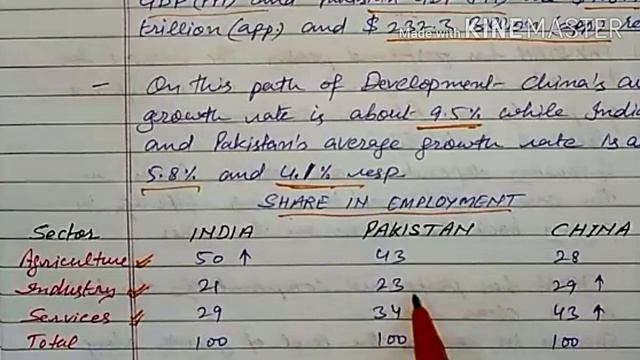 GDP (PPP) and Pakistan
trillion (app) and $ 232.3
Made with KINEMASTER
- On this path of Development - China's
growth rate is about 9.5% while India
and Pakistan's average growth rate is
5.8% and 4.1% resp
SHARE IN EMPLOYMENT
Sector INDIA PAKISTAN CHINA
Agriculture ✓ 50 ↑ 43 28
Industry ✓ 21 23 29 ↑
Services ✓ 29 34 43 ↑
Total 100 100 100